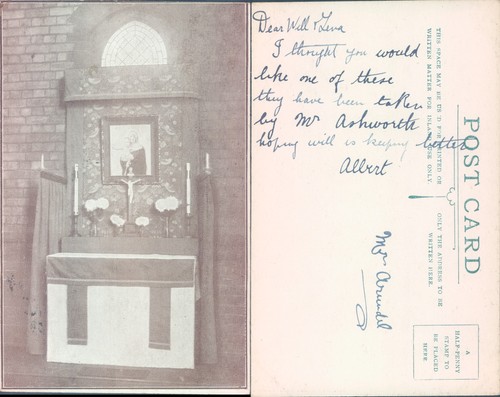 Dear Will & Lena
I thought you would
like one of these
they have been taken
by Mr Ashworth
hoping will is keeping better
Albert
Mrs Arundel
POST CARD
THIS SPACE MAY BE USED FOR PRINTED OR
WRITTEN MATTER FOR INLAND USE ONLY.
ONLY THE ADDRESS TO BE
WRITTEN HERE.
A
HALF-PENNY
STAMP TO
BE PLACED
HERE